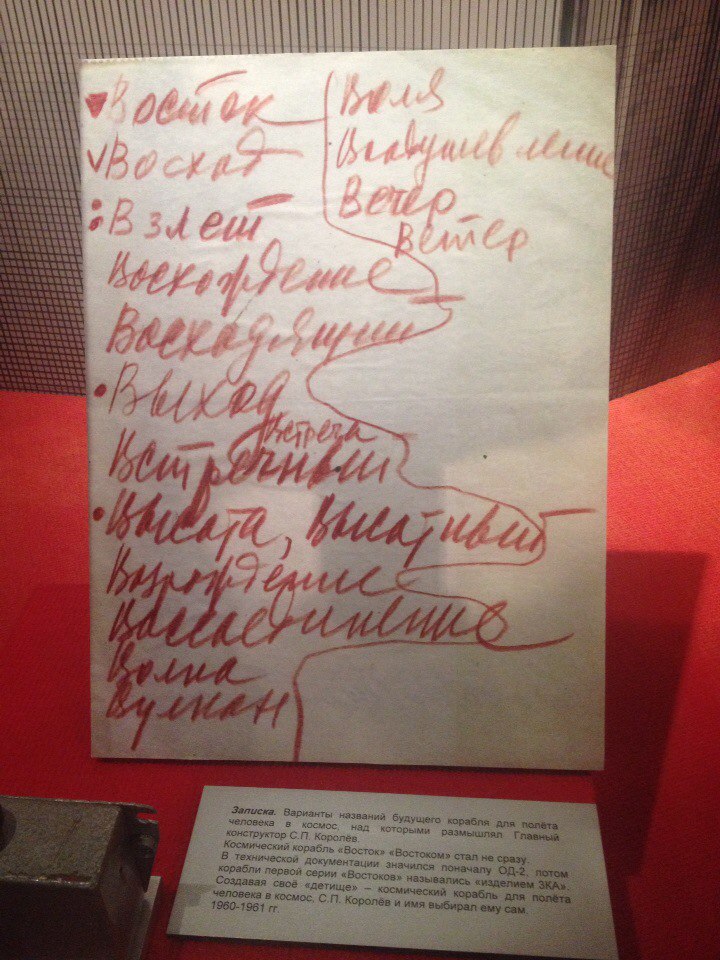 Восток
Восход
Взлет
Восхождение
Восходящий
Выход
Встреча
Встречный
Высота, Высотный
Возрождение
Воссоединение
Волна
Вулкан
Воля
Воодушевление
Вечер
Ветер
Записка. Варианты названий будущего корабля для полёта
человека в космос, над которыми размышлял Главный
конструктор С.П. Королёв.
Космический корабль «Восток» «Востоком» стал не сразу.
В технической документации значился поначалу ОД-2, потом
корабли первой серии «Востоков» назывались «изделием 3КА».
Создавая своё «детище» – космический корабль для полёта
человека в космос, С.П. Королёв и имя выбирал ему сам.
1960-1961 гг.